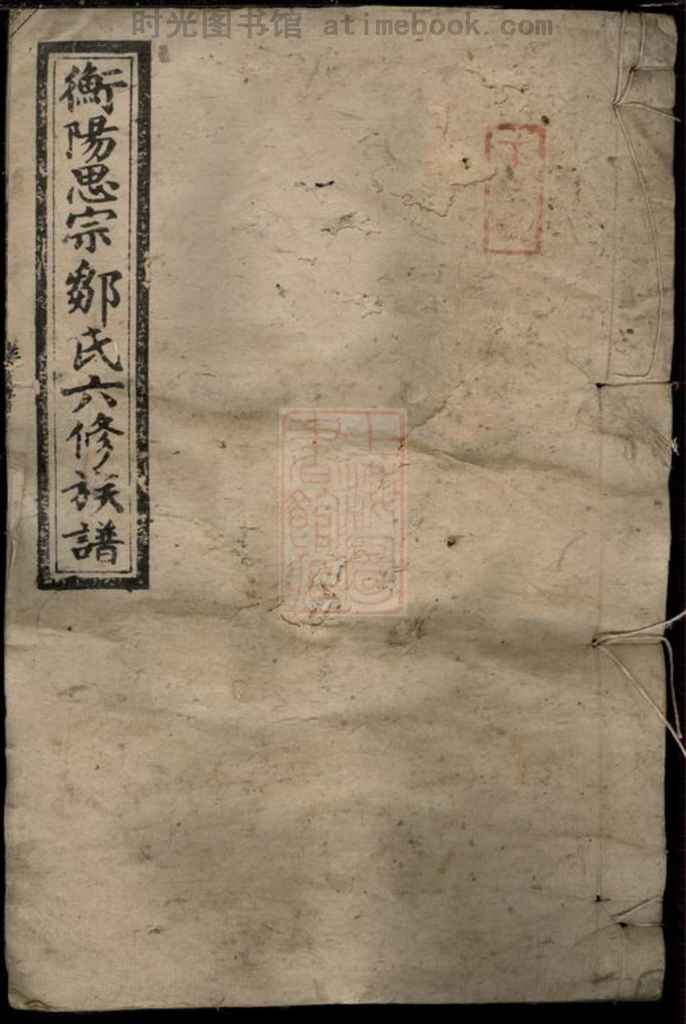 时光图书馆 atimebook.com
衡陽思宗鄒氏六修族譜